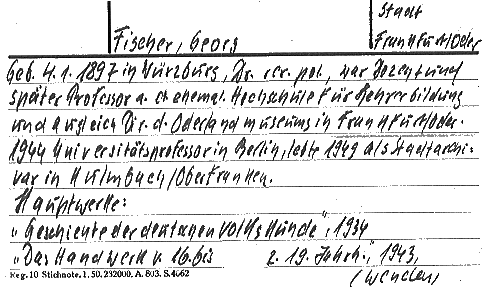 Stadt
Fischer, Georg Frankfurt/Oder
Geb. 4.1.1897 in Würzburg, Dr. rer. pol., war Dozent und
später Professor a. d. ehemal. Hochschule für Lehrerbildung
und zugleich Dir. d. Oderlandmuseums in Frankfurt/Oder.
1944 Universitätsprofessor in Berlin, lebte 1949 als Stadtarchi-
var in Kulmbach/Oberfranken.
Hauptwerke:
"Geschichte der deutschen Volkskunde", 1934
"Das Handwerk v. 16. bis z. 19. Jahrh.", 1943,
Reg. 10 Stichnote. 1. 50. 232000. A. 803. S. 4662
(wenden)